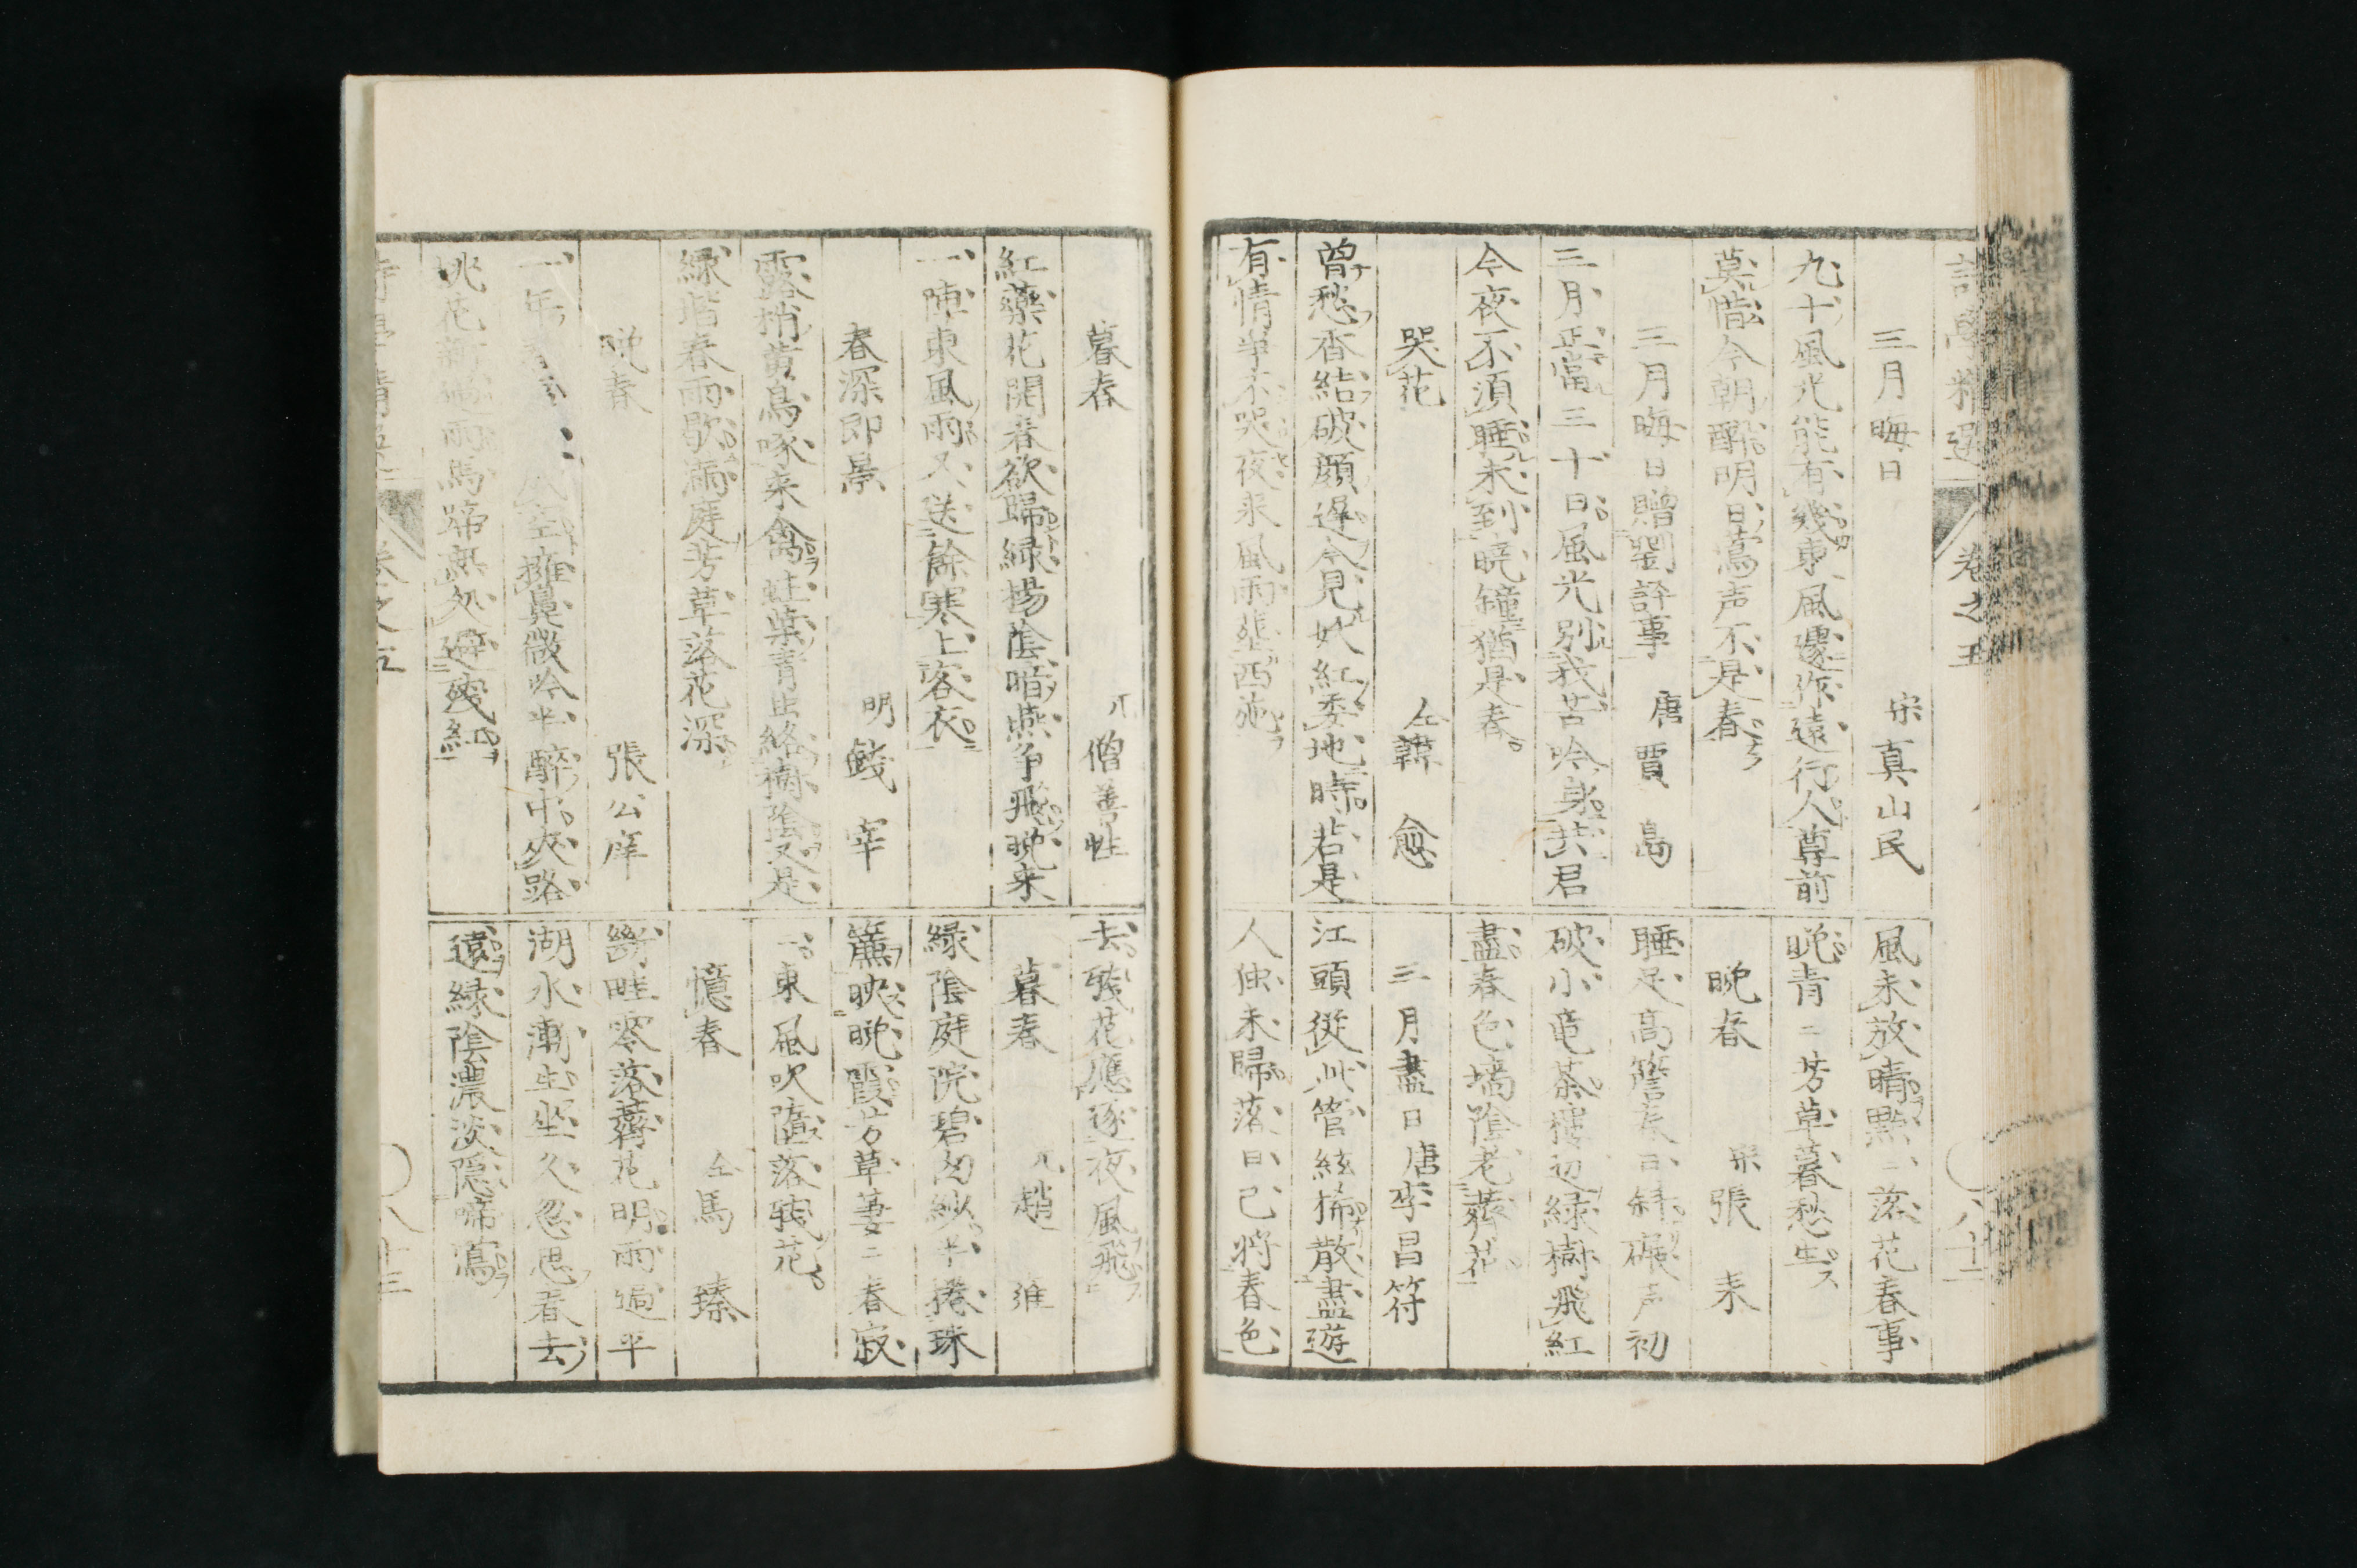 三月晦日　宋真山民
九十風光能有幾東風遽作遠行人尊前
莫惜今朝醉明日鶯声不是春
三月晦日贈劉評事　唐賈島
三月正當三十日風光別我苦吟身共君
今夜不須睡未到曉鐘猶是春
哭花　仝韓愈
曽愁香結破顔遅今見妖紅委地時若是
有情争不哭夜来風雨塟西施
風未放晴點〻落花春事
晩青〻芳草暮愁生
晩春　宋張耒
睡足高簷春日斜碾声初
破小竜茶　辺緑樹飛紅
盡春色墻陰老薺花
三月盡日唐李昌符
江頭従此管絃稀散盡遊
人独未歸落日已将春色
詩學精選　卷之五　八十二
暮春　元僧善性
紅藥花開春欲歸緑楊陰暗燕争飛晩来
一陣東風雨又送餘寒上客衣
春深即景　明錢宰
露梢黄鳥啄来禽　葉青虫絡樹陰又是
緑堦春雨歇満庭芳草落花深
晩春　張公庠
一年春　擁鼻微吟半醉中夾路
桃花新　雨馬蹄無処避残紅
去残花應逐夜風飛
暮春　元趙雍
緑陰庭院碧　紗半捲珠
簾映晩霞芳草萋〻春寂
〻東風吹墮落残花
憶春　仝馬臻
幾畦零落薺花明雨過平
湖水漸生坐久忽思春去
遠緑陰濃淡隠啼鶯
卷之五　八十三